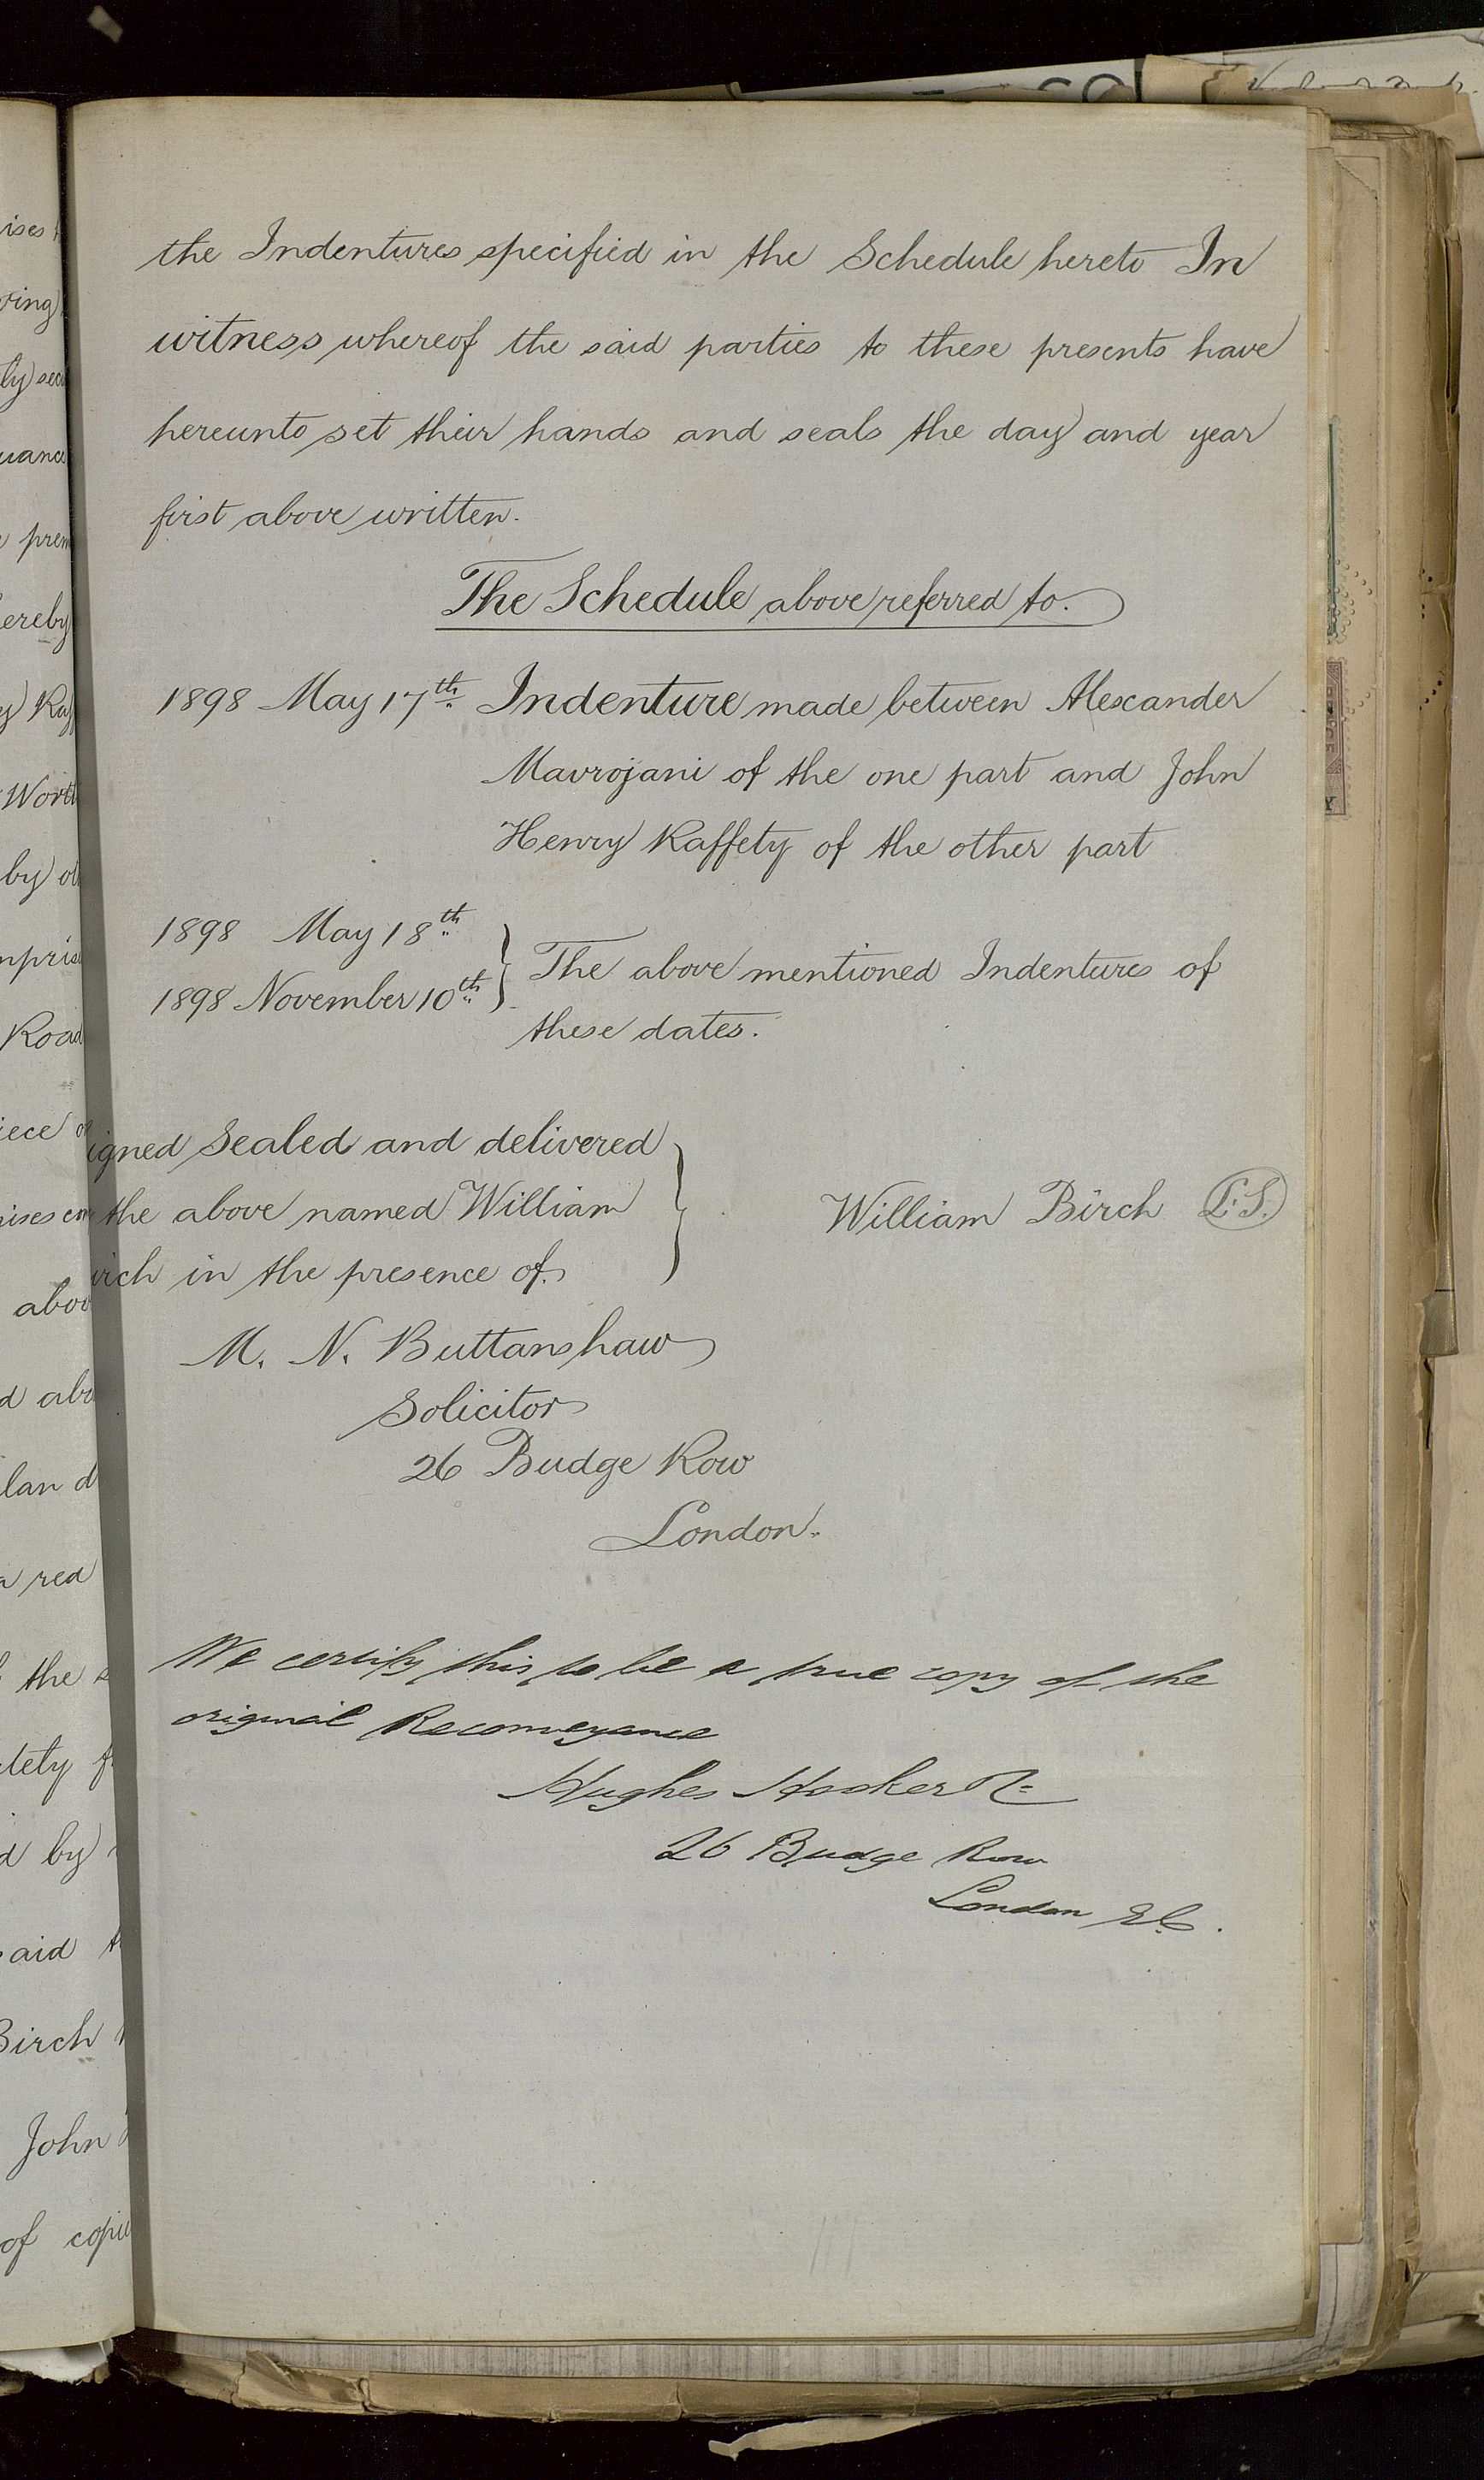 the Indentures specified in the Schedule hereto In
witness whereof the said parties to these presents have
hereunto set their hands and seals the day and year
first above written.
The Schedule above referred to.
1898 May 17th Indenture made between Alexander
Mavrojani of the one part and John
Henry Raffety of the other part
1898 May 18th
1898 November 10th } The above mentioned Indentures of
these dates.
igned Sealed and delivered
the above named William
William Birch L.S.
irch in the presence of
M. N. Buttanshaw
Solicitor
26 Budge Row
London.
We certify this to be a true copy of the
original Reconveyance
Hughes Hooker &
26 Budge Row
London E.C.